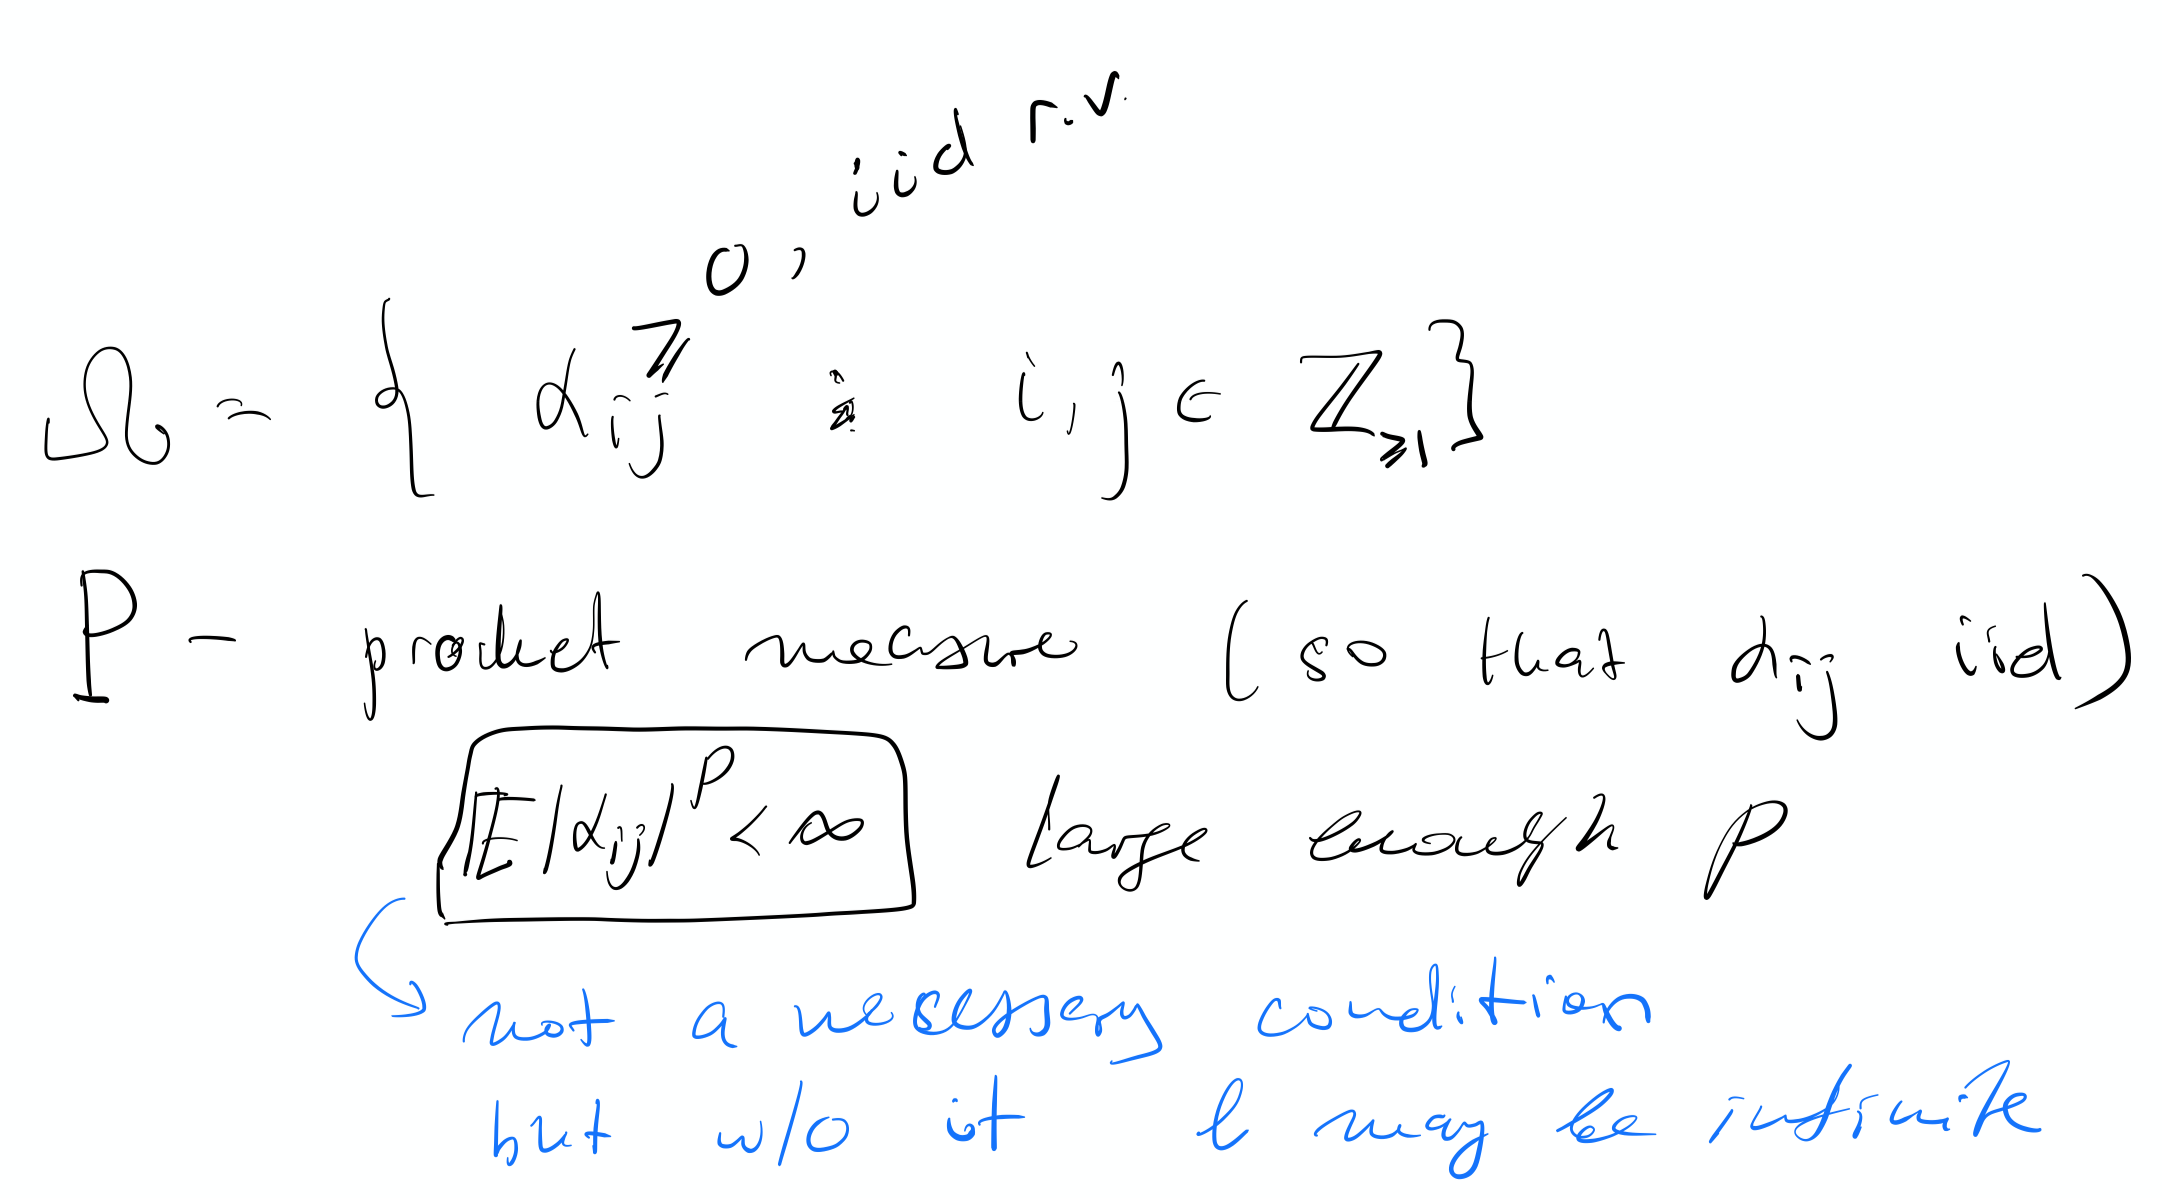 Ω = { α_ij ≥ 0, iid r.v. : i, j ∈ ℤ_≥1 }
P - product measure (so that α_ij iid)
𝔼|α_ij|^p < ∞ large enough p
not a necessary condition
but w/o it ℓ may be infinite